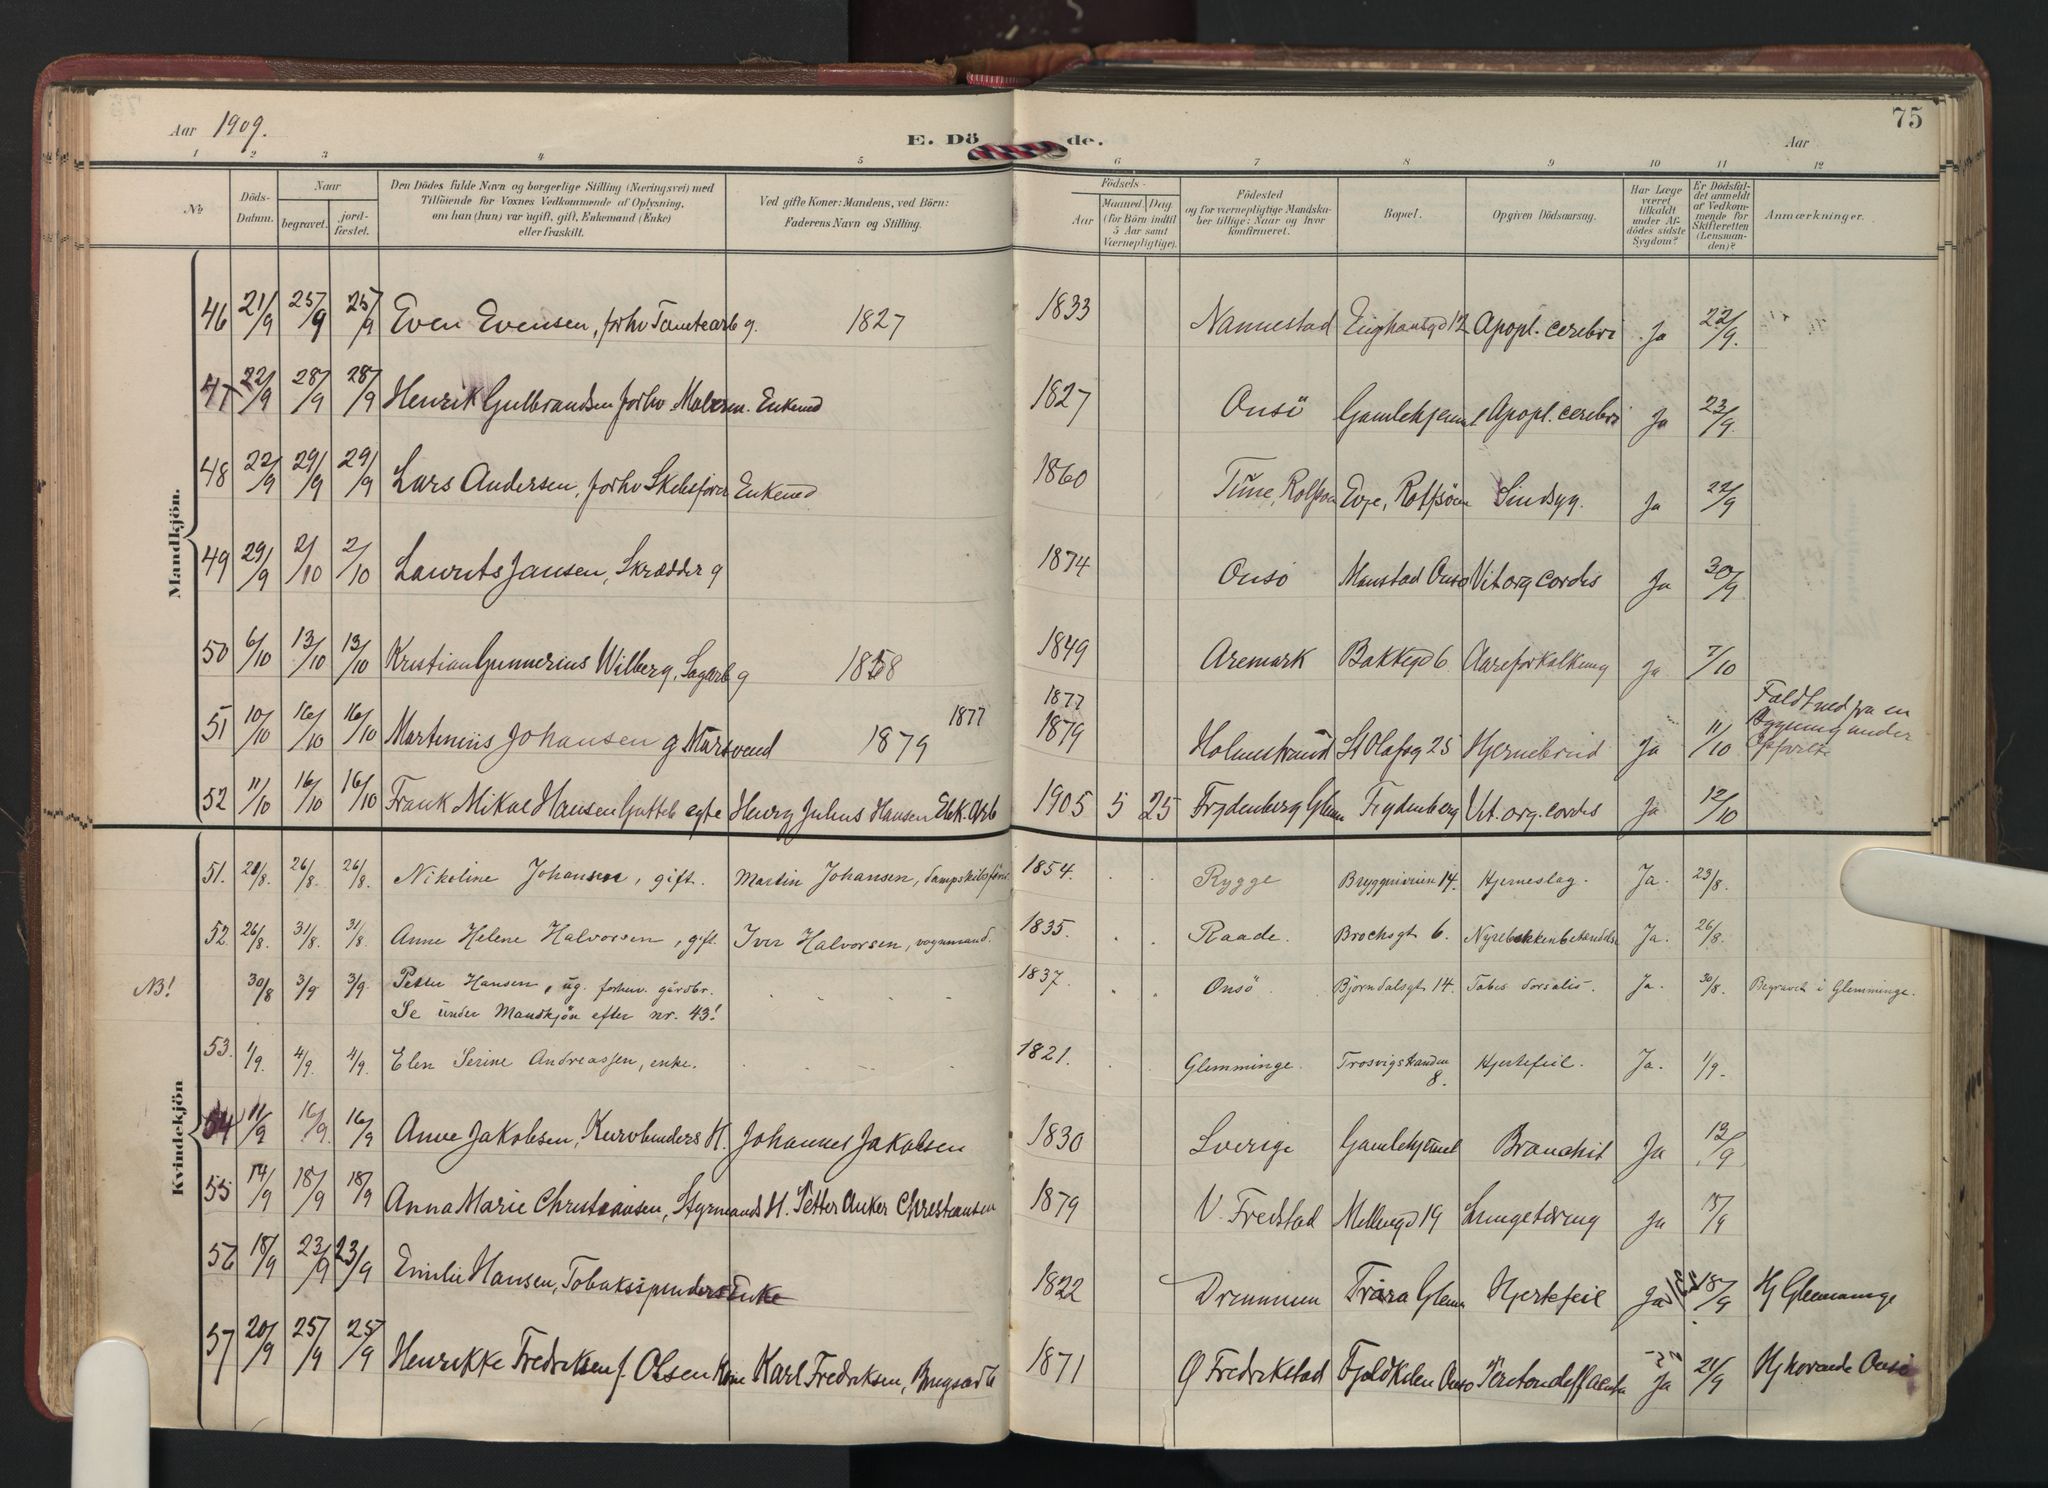 75
Aar 1909.
E. Dö de.
Aar
1 2 3 4 5 6 7 8 9 10 11 12
No
Döds-Datum.
Naar
begravet. jordfæstet.
Den Dödes fulde Navn og borgerlige Stilling (Næringsvei) med
Tilföiende for Voxnes Vedkommende af Oplysning,
om han (hun) var ugift, gift, Enkemand (Enke)
eller fraskilt.
Ved gifte Koner: Mandens, ved Börn:
Faderens Navn og Stilling.
Födsels-
Aar
Maaned. Dag.
(for Börn indtil
5 Aar samt
Værnepligtige).
Födested
og for værnepligtige Mandska-
ber tillige: Naar og hvor
konfirmeret.
Bopæl.
Opgiven Dödsaarsag.
Har Læge
været
tilkaldt
under Af-
dödes sidste
Sygdom?
Er Dödsfal-
det anmeldt
af Vedkom-
mende for
Skifteretten
(Lensman-
den)?
Anmærkninger.
Mandkjön.
46 21/9 25/9 25/9 Even Evensen, forhv Tomtearb g. 1827 1833 Nannestad 12 Apopl. cerebri Ja 22/9.
47 22/9 28/9 28/9 Henrik Gulbrandsen forhv. Malerm. Enkemd 1827 Onsö Gamlehjemmet Apopl. cerebri Ja 23/9.
48 22/9 29/9 29/9 Lars Andersen, forhv Skibsförer Enkemd 1860 Tune, Rolfsöen Evje, Rolfsöen Sindsyg. Ja 22/9
49 29/9 2/10 2/10 Laurits Jansen, Skrædder g 1874 Onsö Manstad Onsö Vit org cordis Ja 30/9
50 6/10 13/10 13/10 Kristian Gunnerius Wilberg, Sagarb g 1858 1849 Aremark Bakkegd 6 Aareforkalkning Ja 7/10
51 10/10 16/10 16/10 Martinius Johansen g Mursvend 1879 1877 1877 1879 Holmestrand St Olafsg 25 Hjernebrud Ja 11/10 Faldt ned fra en
Bygning under
52 11/10 16/10 16/10 Frank Mikal Hansen Gutteb ægte Henry Julius Hansen Elek. Arb 1905 5 25 Frydenberg Glem Frydenberg Vit. org. cordis Ja 12/10
Kvindekjön
51. 20/8. 26/8. 26/8. Nikoline Johansen, gift. Martin Johansen, dampskibsförer 1854. Rygge Bryggeriveien 14. Hjerneslag. Ja. 23/8.
52. 26/8. 31/8. 31/8. Anne Helene Halvorsen, gift. Iver Halvorsen, vognmand. 1835. Raade. Brochsgt 6. Nyrebækkenbetændelse Ja. 26/8.
NB! 30/8 3/9 3/9. Petter Hansen, ug. forhv. gårdbr. 1837. Onsö Björndalsgt 14. Tabes dorsalis. Ja. 30/8. Begravet i Glemminge.
Se under Mandkjön efter nr. 43!
53. 1/9. 4/9. 4/9. Elen Serine Andreassen, enke. 1821. Glemminge. Trosvigstranden
8. Hjertefeil. Ja. 1/9.
54 11/9 16/9. 16/9 Anne Jakobsen, Kurvbinders H. Johannes Jakobsen 1830 Sverige Gamlehjemmet Bronchit Ja 13/9
55 14/9 18/9 18/9 Anna Marie Christiansen, Styrmands H. Petter Anker Christiansen 1879 V. Fredstad Mellemgd 19 Lungetæring Ja 15/9
56 18/9 23/9 23/9 Emilie Hansen, Tobakspinders Enke 1822 Drammen Trara Glem Hjertefeil Ja 18/9 Hj Glemminge
57 20/9 25/9 25/9 Henrikke Fredriksen f. Olsen Kone Karl Fredriksen, Brugsarb 1871 Ø Fredrikstad Fjeldkilen Onsö Ja 21/9 Hj hörende Onsö